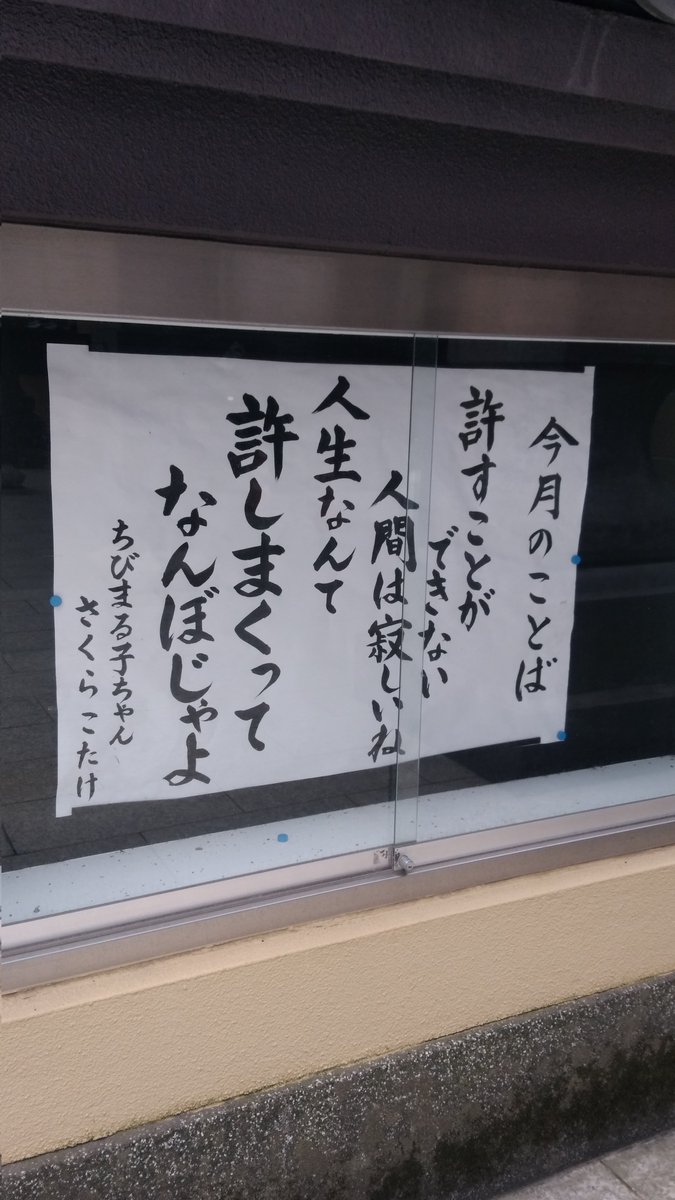 今月のことば
許すことが
できない
人間は寂しいね
人生なんて
許しまくって
なんぼじゃよ
ちびまる子ちゃん
さくらこたけ